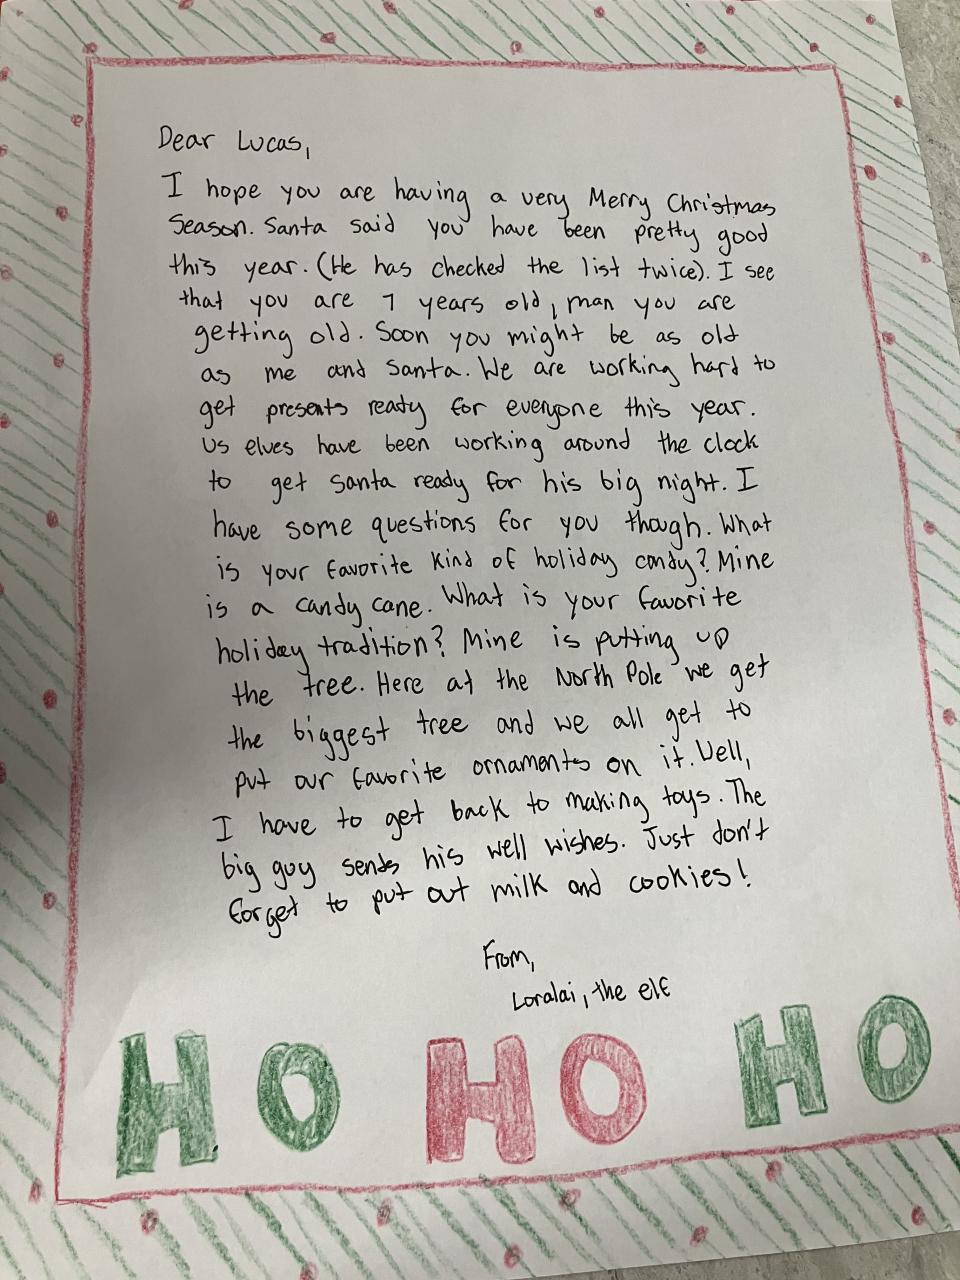 Dear Lucas,
I hope you are having a very Merry Christmas
Season. Santa said you have been pretty good
this year. (He has checked the list twice). I see
that you are 7 years old, man you are
getting old. Soon you might be as old
as me and Santa. We are working hard to
get presents ready for everyone this year.
Us elves have been working around the clock
to get Santa ready for his big night. I
have some questions for you though. What
is your favorite kind of holiday candy? Mine
is a candy cane. What is your favorite
holiday tradition? Mine is putting up
the tree. Here at the North Pole we get
the biggest tree and we all get to
put our favorite ornaments on it. Well,
I have to get back to making toys. The
big guy sends his well wishes. Just don't
forget to put out milk and cookies!
From,
Loralai, the elf
HO HO HO